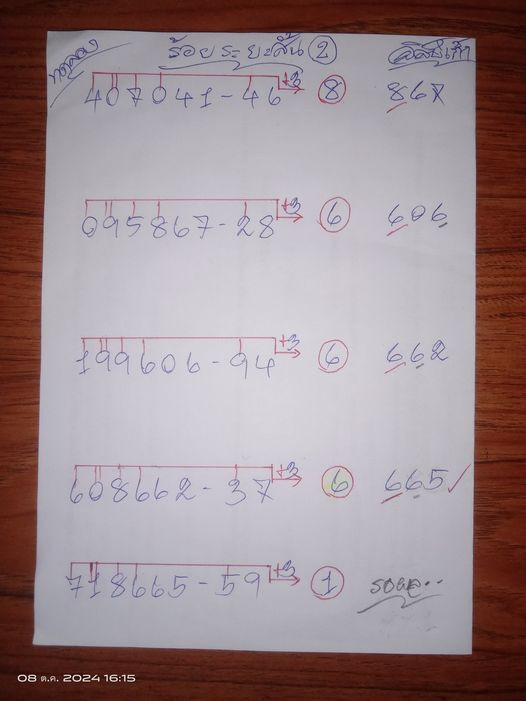 ทดลอง ร้อยระยะสั้น 2
407041-46 +3 8 867
095867-28 +3 6 606
199606-94 +3 6 662
608662-37 +3 6 665 ✓
718665-59 +3 1 รอผล..
08 ต.ค. 2024 16:15